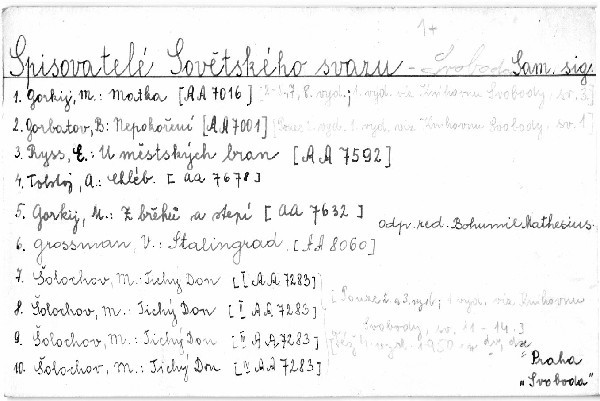 1+
Spisovatelé Sovětského svazu - Svoboda Sam. sig.
1. Gorkij, M.: Matka [AA 7016] [2-5,7, 8. vyd.; 1. vyd. viz Knihovnu Svobody. sv. 3]
2. Gorbatov, B: Nepokoření [AA7001] [Pouze 2. vyd. 1. vyd. viz Knihovnu Svobody. sv. 1]
3. Ryss, E.: U městských bran [AA 7592]
4. Tolstoj, A.: Chléb. [AA 7678]
5. Gorkij, M.: Z břehů a stepí [AA 7632]
odp. red. Bohumil Mathesius.
6. Grossman, V.: Stalingrad. [AA 8060]
7. Šolochov, M.: Tichý Don [I AA 7283]
8. Šolochov, M.: Tichý Don [I AA 7283] [Pouze 2. a 3. vyd.; 1 vyd. viz Knihovnu
9. Šolochov, M.: Tichý Don [II AA 7283] Svobody, sv. 11 - 14.]
10. Šolochov, M.: Tichý Don [II AA 7283] 4. vyd. 1950
Praha
"Svoboda"